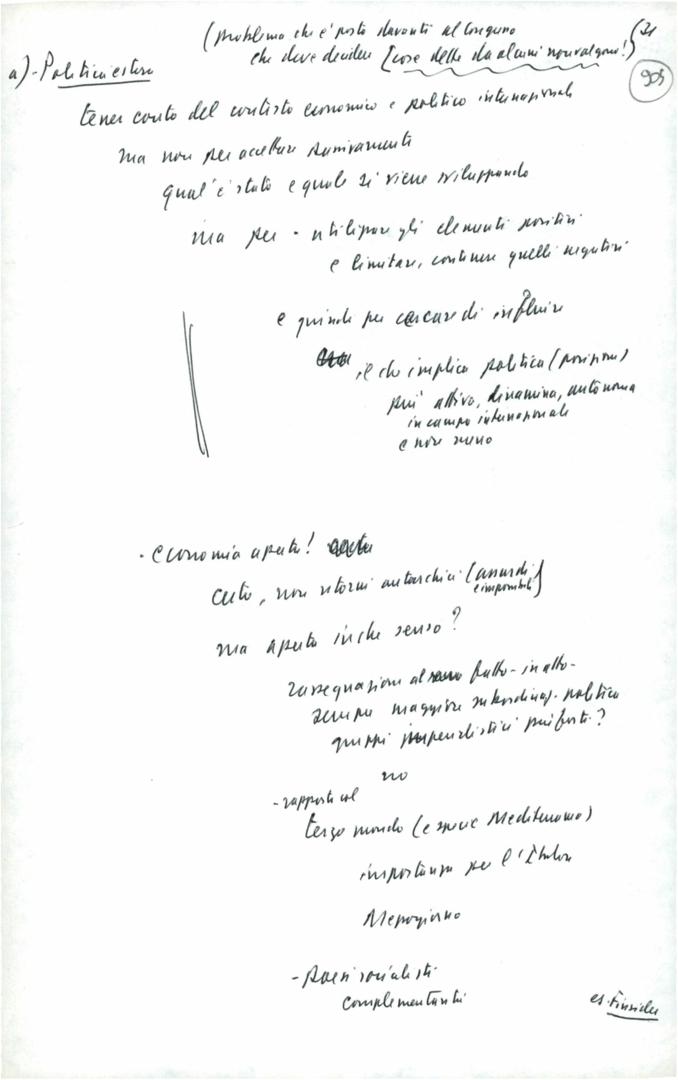 (problema che è posto davanti al Congresso
che deve decidere [cose dette da alcuni non valgono!)
21
903
a)-Politica estera
tener conto del contesto economico e politico internazionale
ma non per accettare passivamente
qual'è stato e quale si viene sviluppando
ma per • utilizzare gli elementi positivi
e limitare, contenere quelli negativi
e quindi per cercare di influire
il che implica politica (posizione)
più attiva, dinamica, autonoma
in campo internazionale
e non meno
• economia aperta!
certo, non ritorni autarchici (assurdi
e impossibili)
ma aperta in che senso?
rassegnazione al fatto - in atto -
sempre maggiore subordinaz. politica
gruppi imperialistici più forti?
no
- rapporti col
terzo mondo (e specie Mediterraneo)
importanza per l'Italia
Mezzogiorno
- Paesi socialisti
complementarità
es. Finsider